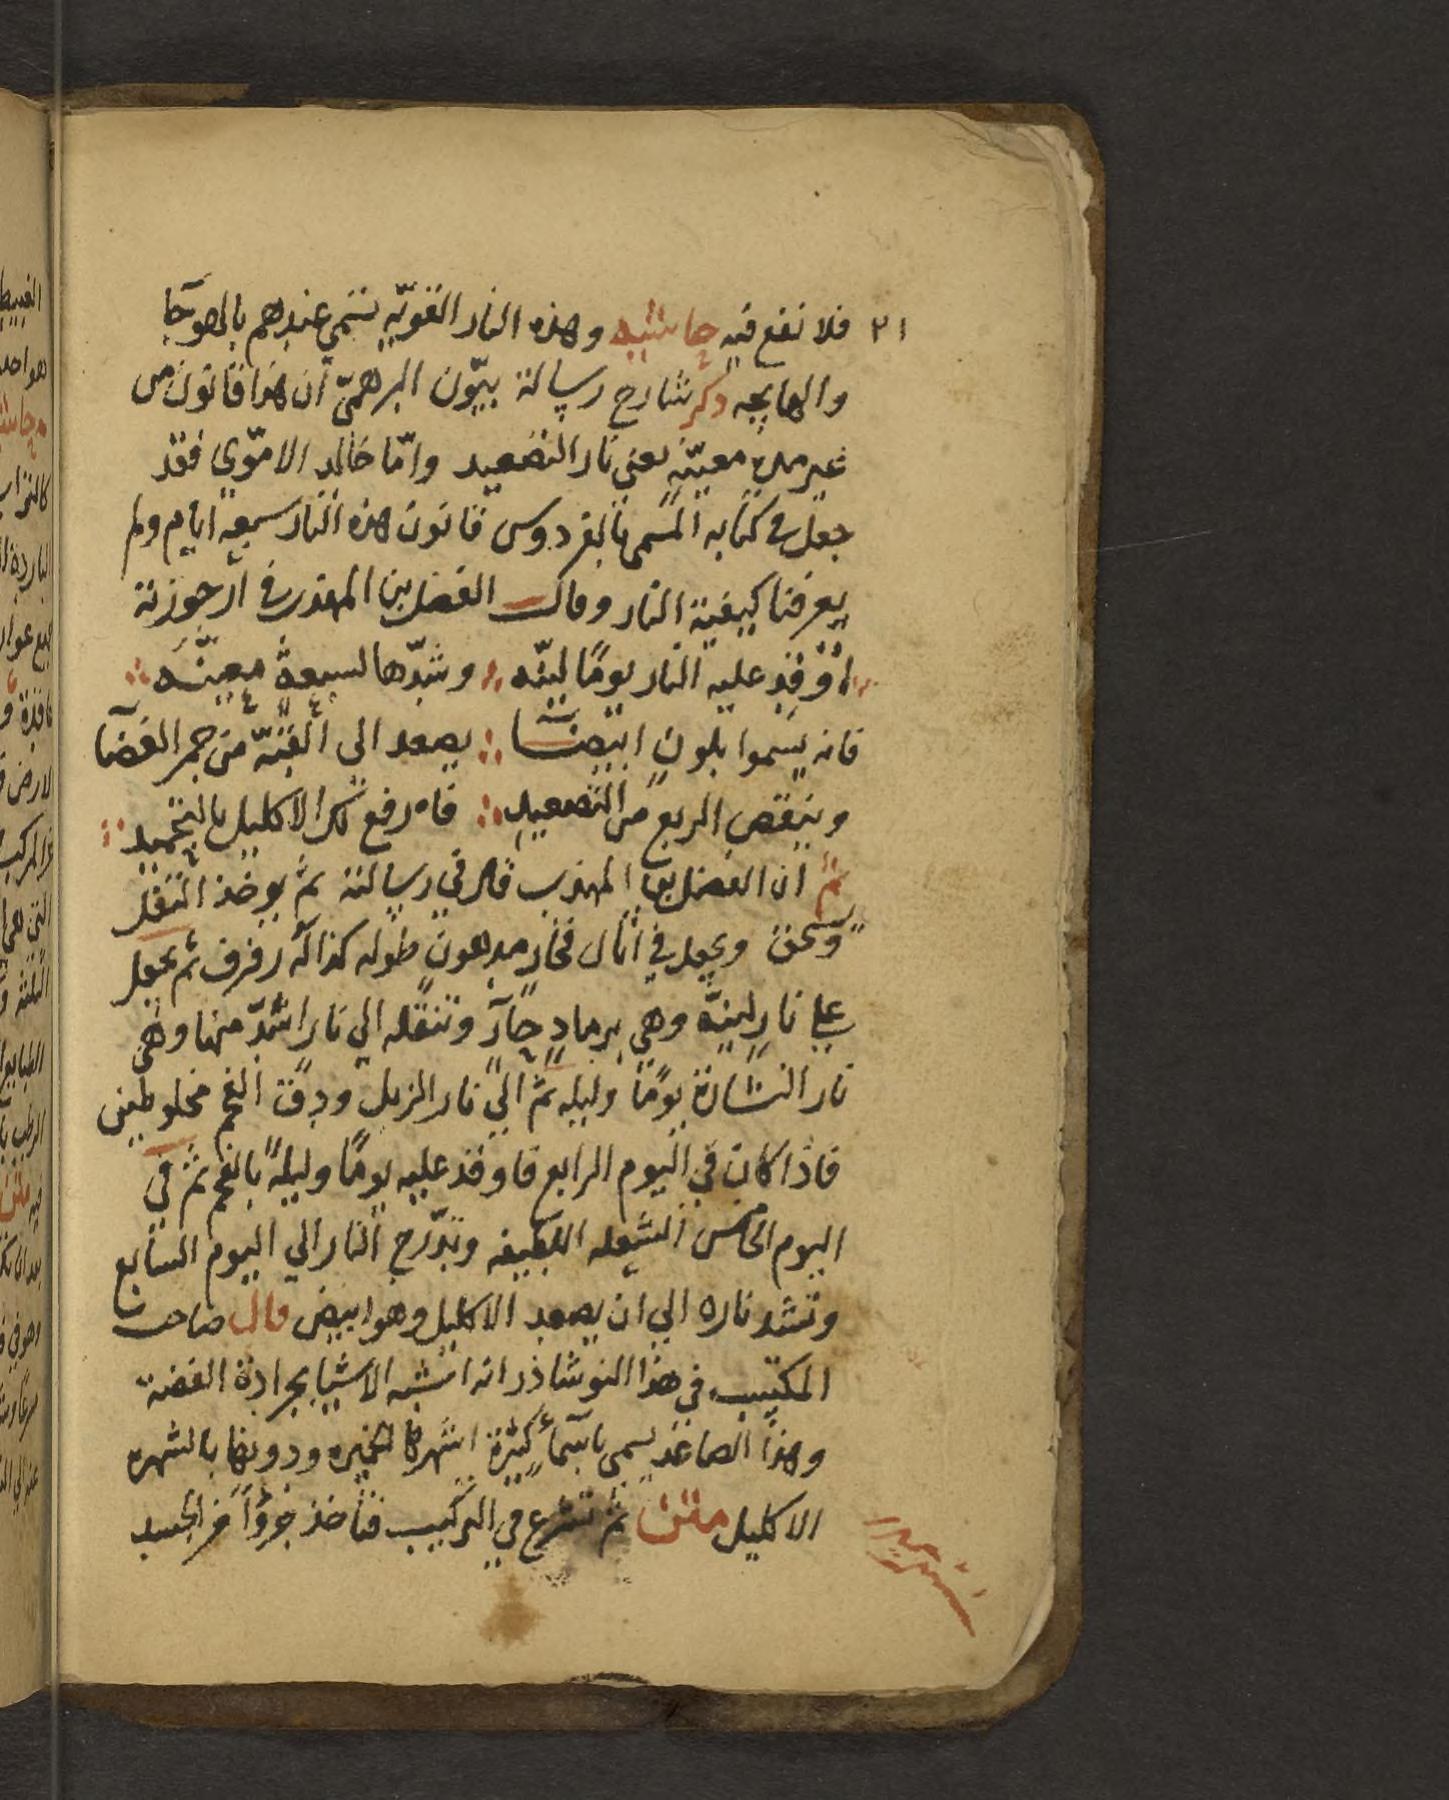 ٢١ فلا نفع فيه حاشيه وهذه النار القويّه تسمى عندهم بالهوجا
والهايجه ذكر شارح رسالة بيّون البرهميّ أن هذا قانون من
غير مدة معيّنه يعني نار التصعيد وامّا خالد الامّوي فقد
جعل في كتابه المسمى بالفردوس قانون هذه النار سبعه ايام ولم
يعرفنا كيفية النار وقال الفضل بن المهذب في ارجوزته
اوْقِد عليه النار يومًا ليّنه وشدّها لسبعةٍ معيّنه
فانه يسموا بلون ابيضا يصعد الى القبّة من جمر الغضا
وينقص الربع من التصعيد فارفع لك الاكليل بالتجميد
ثمّ ان الفضل بن المهذب قال في رسالته ثمّ يوخذ الثفل
ويسحق ويجعل في اثال فخار مدهون طوله كذا له رفرف ثم يجعل
علي نار لينّه وهي برماد حآرّ وتنقله الي نار اشدّ منها وهي
نار النشارة يومًا وليله ثمّ الي نار الزبل ودِقّ الفحم مخلوطين
فاذا كان في اليوم الرابع فاوقد عليه يومًا وليلهً بالفحم ثمّ في
اليوم الخامس الشعله اللطيفه وتدّرج النار الي اليوم السابع
وتشد ناره الي ان يصعد الاكليل وهو ابيض قال صاحب
المكتسب في هذا النوشاذر انه اشبه الاشيا بجرادة الفضة
وهذا الصاعد يسمى باسمآءٍ كثيرة اشهرها الخميره ودونها بالشهره
الاكليل متن ثمّ تشرع في التركيب فتأخذ جزؤاً من الجسد